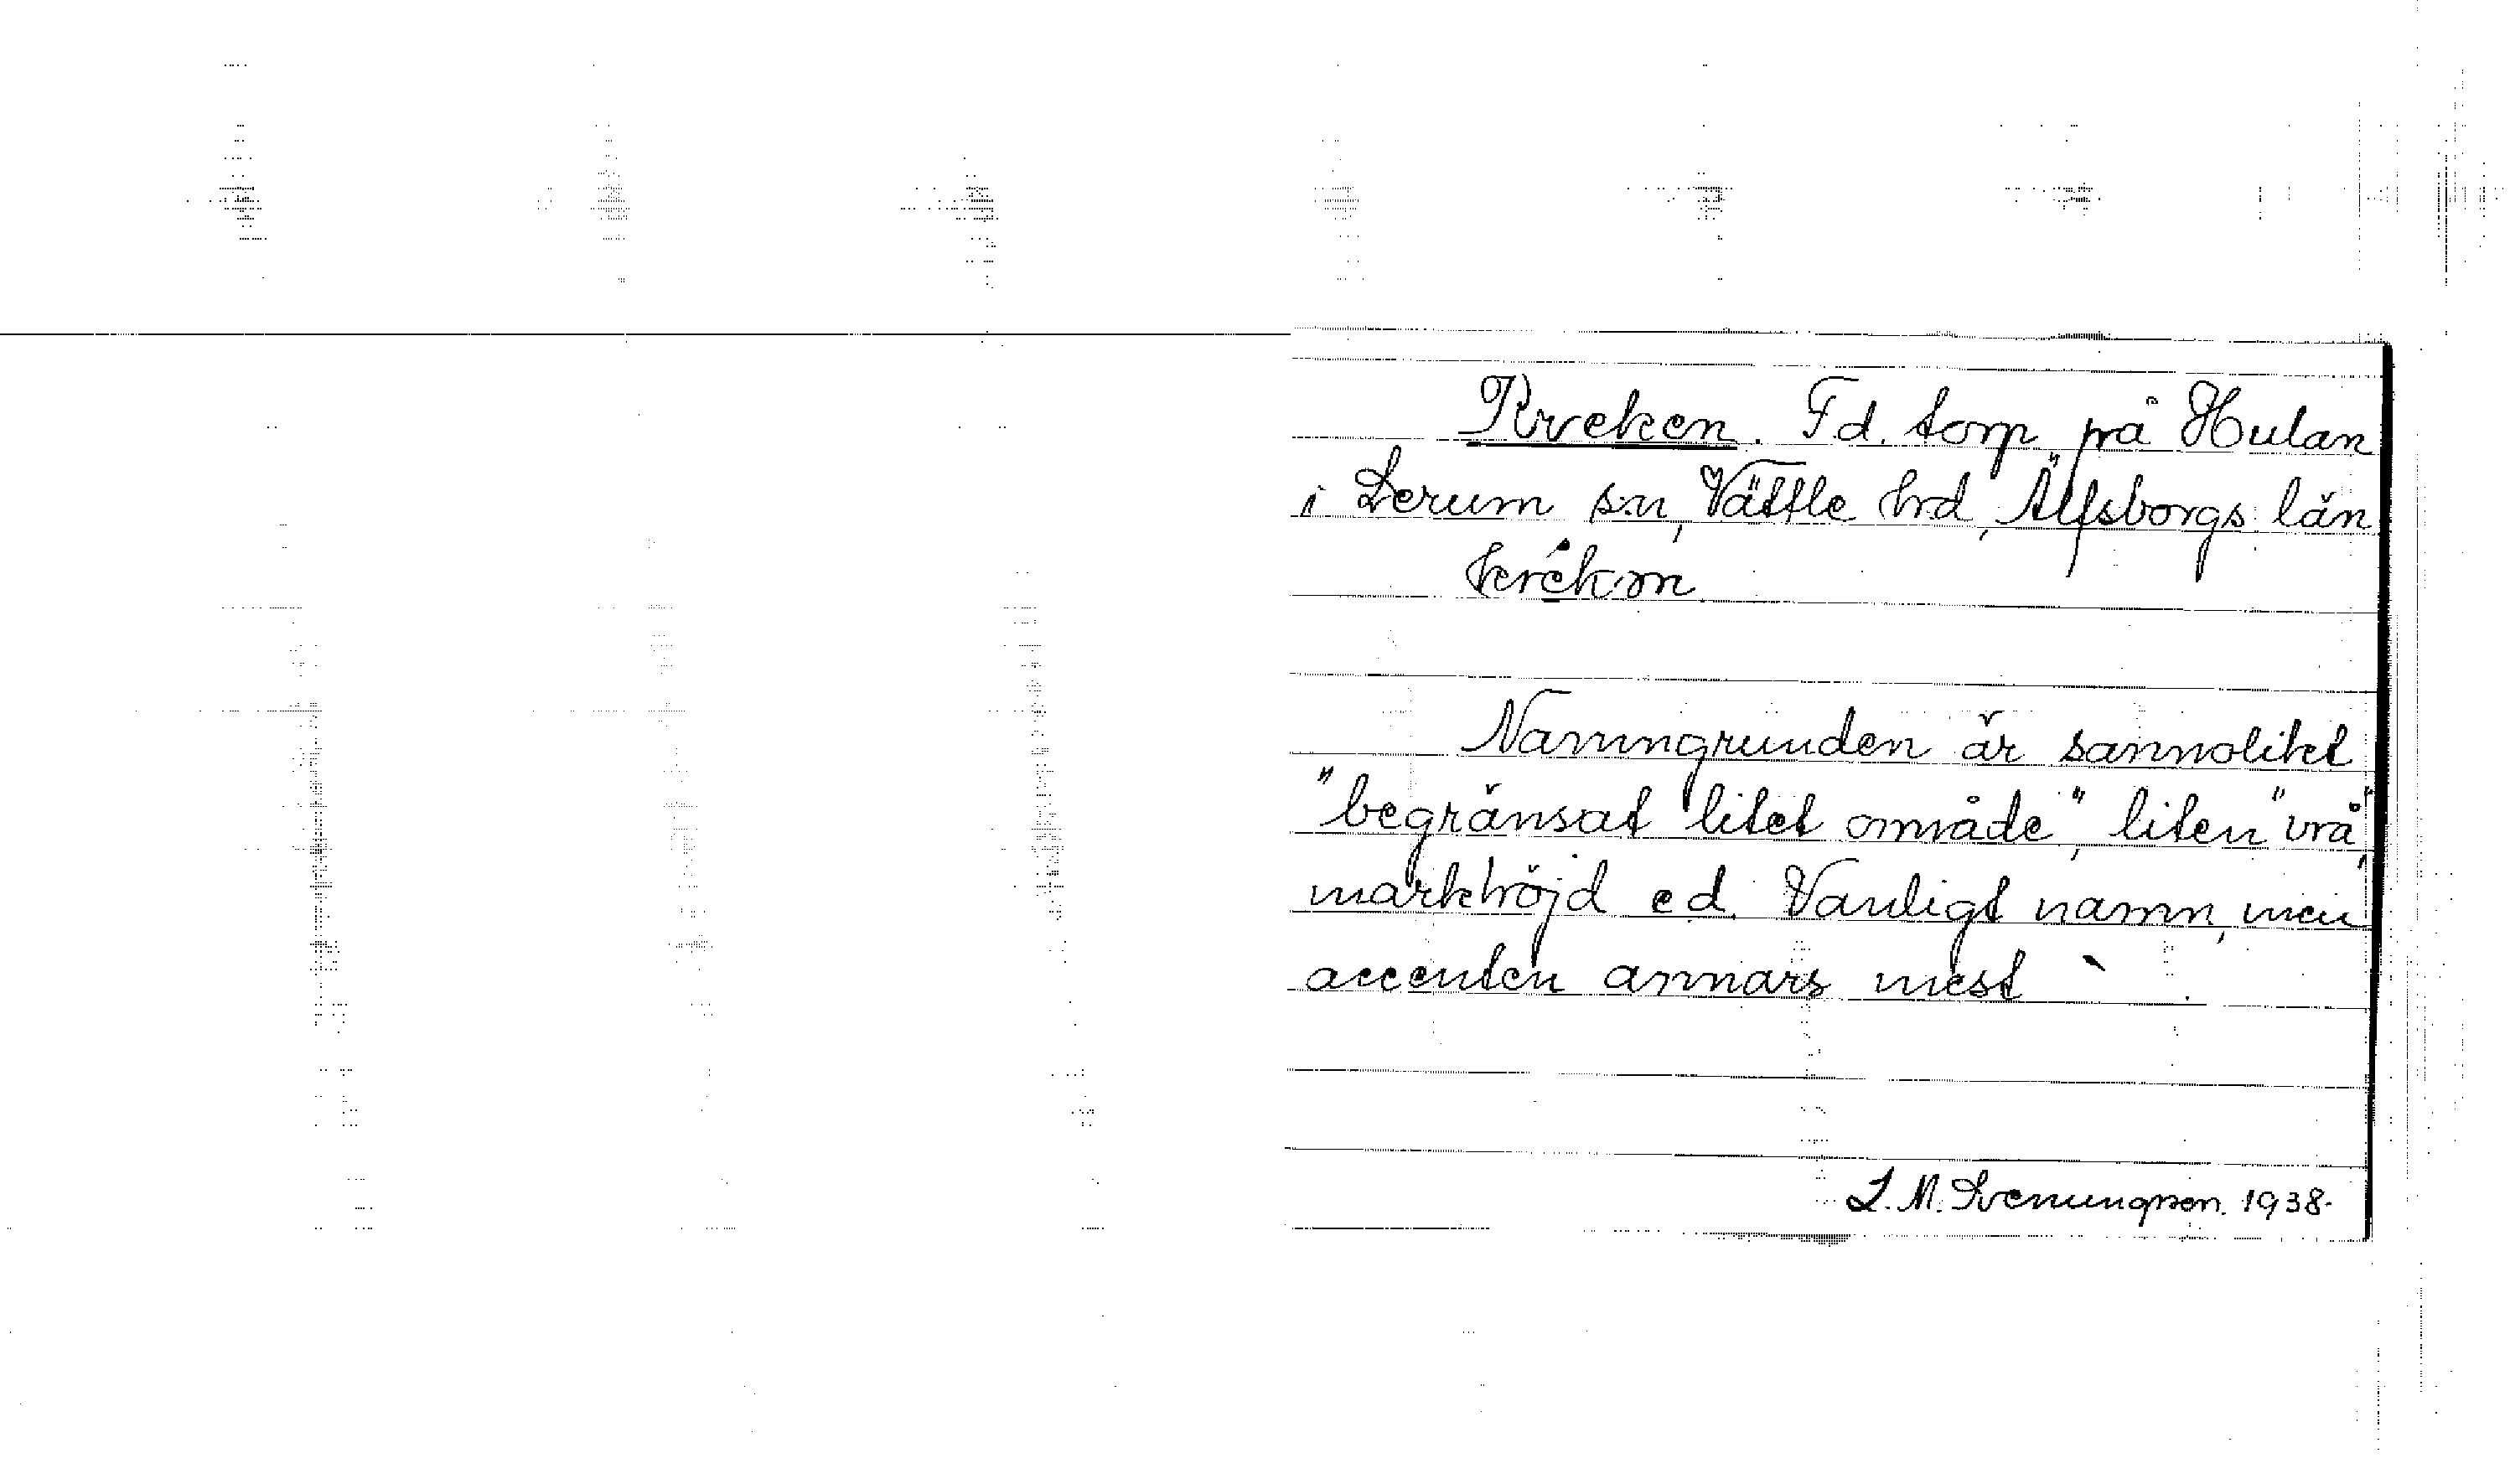 Kroken. F.d. torp på Hulan
i Lerum sn, Vättle hrd, Älfsborgs län
krókm
Namngrunden är sannolikt
"begränsat litet område", liten "vrå",
markhöjd e d. Vanligt namn, men
accenten annars mest `.
L. M. Svenungsson. 1938.